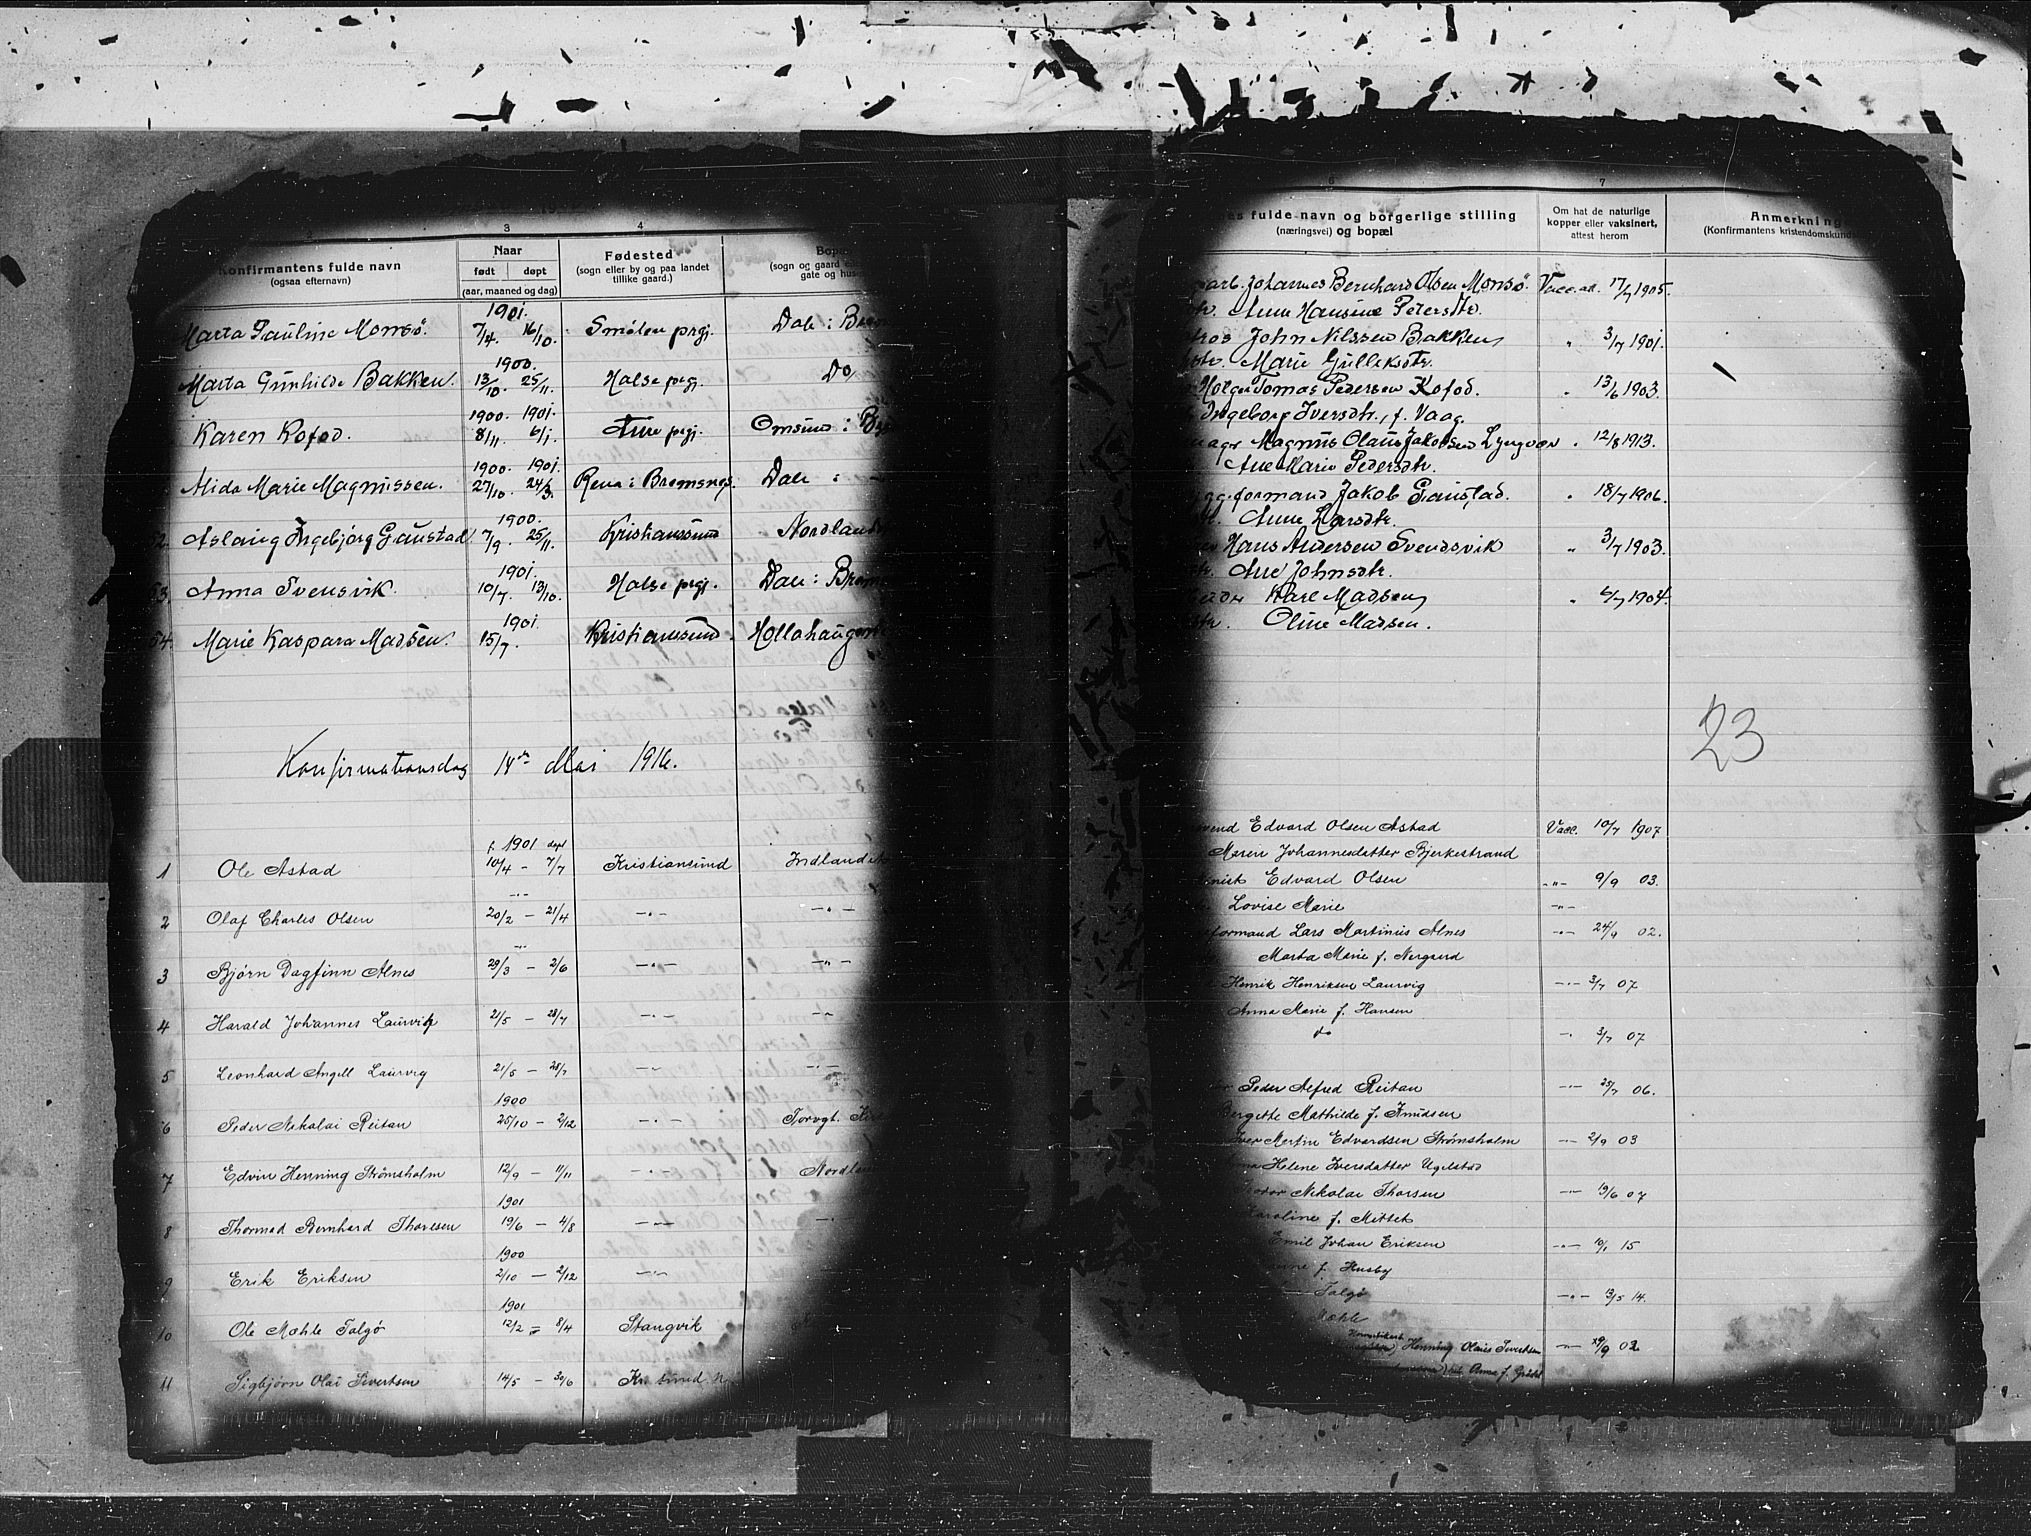 2 3 4
Konfirmantens fulde navn
(ogsaa efternavn)
Naar
født døpt
(aar, maaned og dag)
Fødested
(sogn eller by og paa landet
tillike gaard.)
(sogn og gaard
gate og hus
1901.
Marta Pauline Monsø. 7/4. 16/10. Smølen prgj. Dale: Brem
1900.
Marta Gunhilde Bakken. 13/10. 25/11. Halse prgj. Do
1900. 1901.
Karen Kofod. 8/11. 6/1. Aure prgj. Omsund:
1900. 1901.
Alida Marie Magnussen. 27/10. 24/3. Rena: Bremsnes. Dale:
1900.
52. Aslaug Ingebjørg Gaustad 7/9. 25/11. Kristianssund Nordland
1901.
53. Anna Svensvik. 10/7. 13/10. Halse prgj. Dale: Brem
1901.
54. Marie Kaspara Madsen. 15/7. Kristianssund. Hollahaugen
Konfirmationsdag 14de Mai 1916.
f. 1901 døpt
1 Ole Astad 10/4 - 7/7 Kristiansund Indlandet
-"-
2 Olaf Charles Olsen 20/2 - 21/4 -"- -"-
-"-
3 Bjørn Dagfinn Alnes 29/3 - 2/6 -"- -"-
4 Harald Johannes Laurvig 21/5 - 28/7 -"- -"-
5 Leonhard Angell Laurvig 21/5 - 28/7 -"- -"-
1900
6 Peder Nikolai Reitan 25/10 - 2/12 -"- Torvgt.
7 Edvin Henning Strømsholm 12/9 - 11/11 -"- Nordlan
1901
8 Thormod Bernhard Thoresen 19/6 - 4/8 -"- -"-
1900
9 Erik Eriksen 2/10 - 2/12 -"-
1901
10 Ole Mæhle Talgø 12/2 - 8/4 Stangvik
11 Sigbjørn Olai Sivertsen 14/5 - 30/6 Kr. sund. N
7
fulde navn og borgerlige stilling
(næringsvei) og bopæl
Om hat de naturlige
kopper eller vaksinert,
attest herom
Anmerkning
(Konfirmantens kristendomskund
arb. Johannes Bernhard Olsen Monsø. Vacc. att. 17/7 1905.
Anne Hansine Petersdtr.
John Nilssen Bakken " 3/7 1901.
Marie Gulleksdtr.
Holger Tomas Pedersen Kofod. " 13/6 1903.
Ingeborg Iversdtr., f. Vaag.
Magnus Olaus Jakobsen Lyngvær " 12/8 1913.
Ane Marie Pedersdtr.
formand Jakob Gaustad. " 18/7 1906.
Anne Larsdtr.
Hans Andersen Svendsvik " 3/7 1903.
Ane Johnsdtr.
Karl Madsen " 6/7 1904.
Oline Madsen.
23
Edvard Olsen Astad Vacc. 10/7 1907
Maren Johannesdatter Bjerkestrand
Edvard Olsen -"- 9/9 03.
Lovise Marie -"-
formand Lars Martinius Alnes -"- 24/9 02.
Marta Marie f. Nergaard
Henrik Henriksen Laurvig -"- 3/7 07
Anna Marie f. Hansen
do -"- 3/7 07
Peder Alfred Reitan -"- 25/7 06.
Bergitte Mathilde f. Knudsen
Iver Martin Edvardsen Strømsholm -"- 2/9 03
Helene Iversdatter Ugelstad
Nikolai Thorsen -"- 19/6 07
Karoline f. Mittet
Emil Johan Eriksen -"- 10/1 15
f. Husby
Talgø -"- 13/5 14.
Mæhle
Henning Olaus Sivertsen -"- 29/9 02
Anna f.